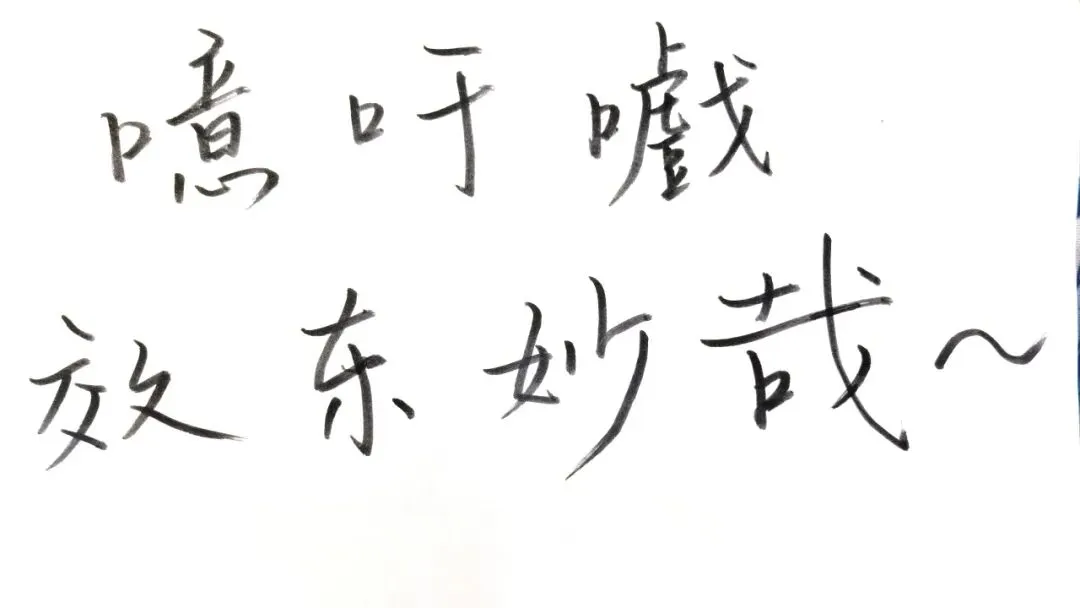 噫吁嚱
放东妙哉~